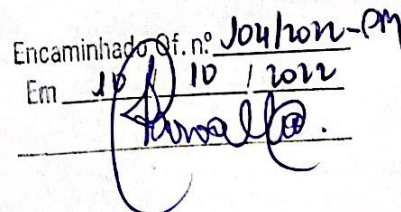 Encaminhado Of. n.º 104/2022-PM
Em 10 / 10 / 2022